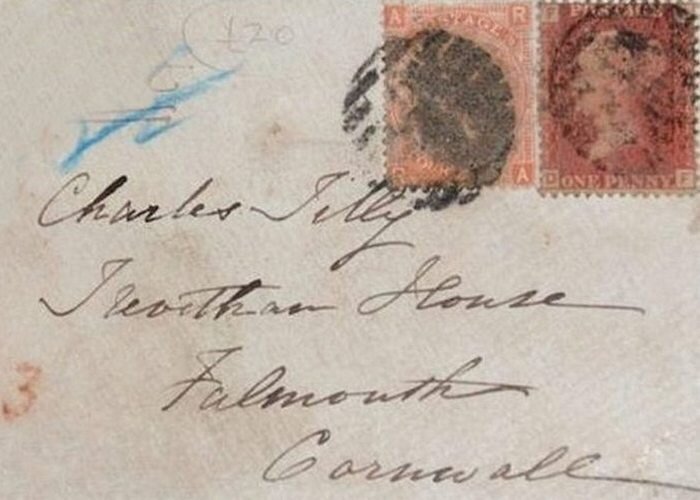 £20
A R
POSTAGE
R A
ONE PENNY
Charles Tilly
Trevethan House
Falmouth
Cornwall
3